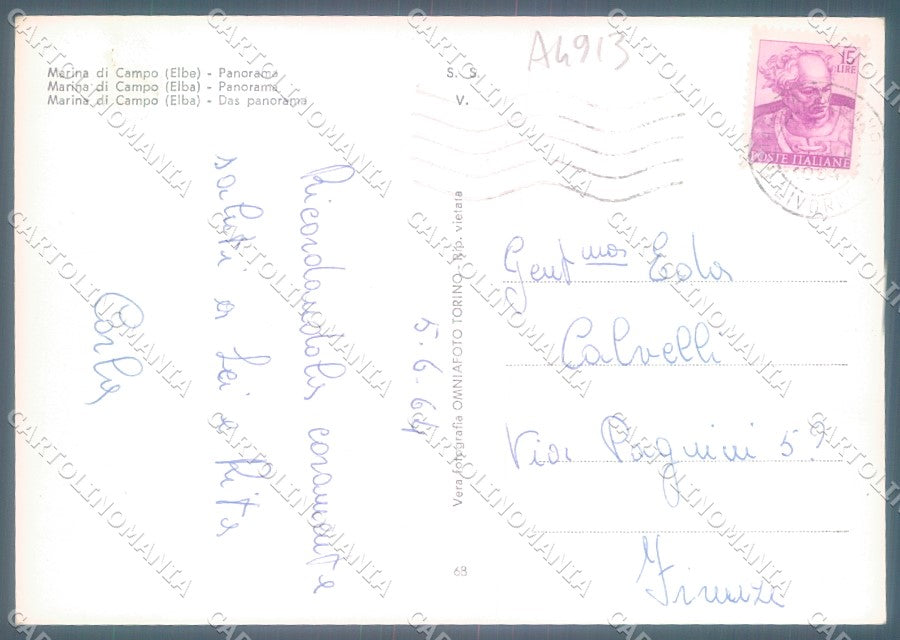 A4913
Marina di Campo (Elbe) - Panorama
Marina di Campo (Elba) - Panorama
Marina di Campo (Elba) - Das panorama
S. S.
V.
15
LIRE
POSTE ITALIANE
Ricordandola caramente
saluti a Lei e Rita
Carla
5.6.64
Vera fotografia OMNIAFOTO TORINO - Rip. vietata
Gent mas Eda
Calvelli
Via Pagnini 5
Firenze
68
CARTOLINOMANIA